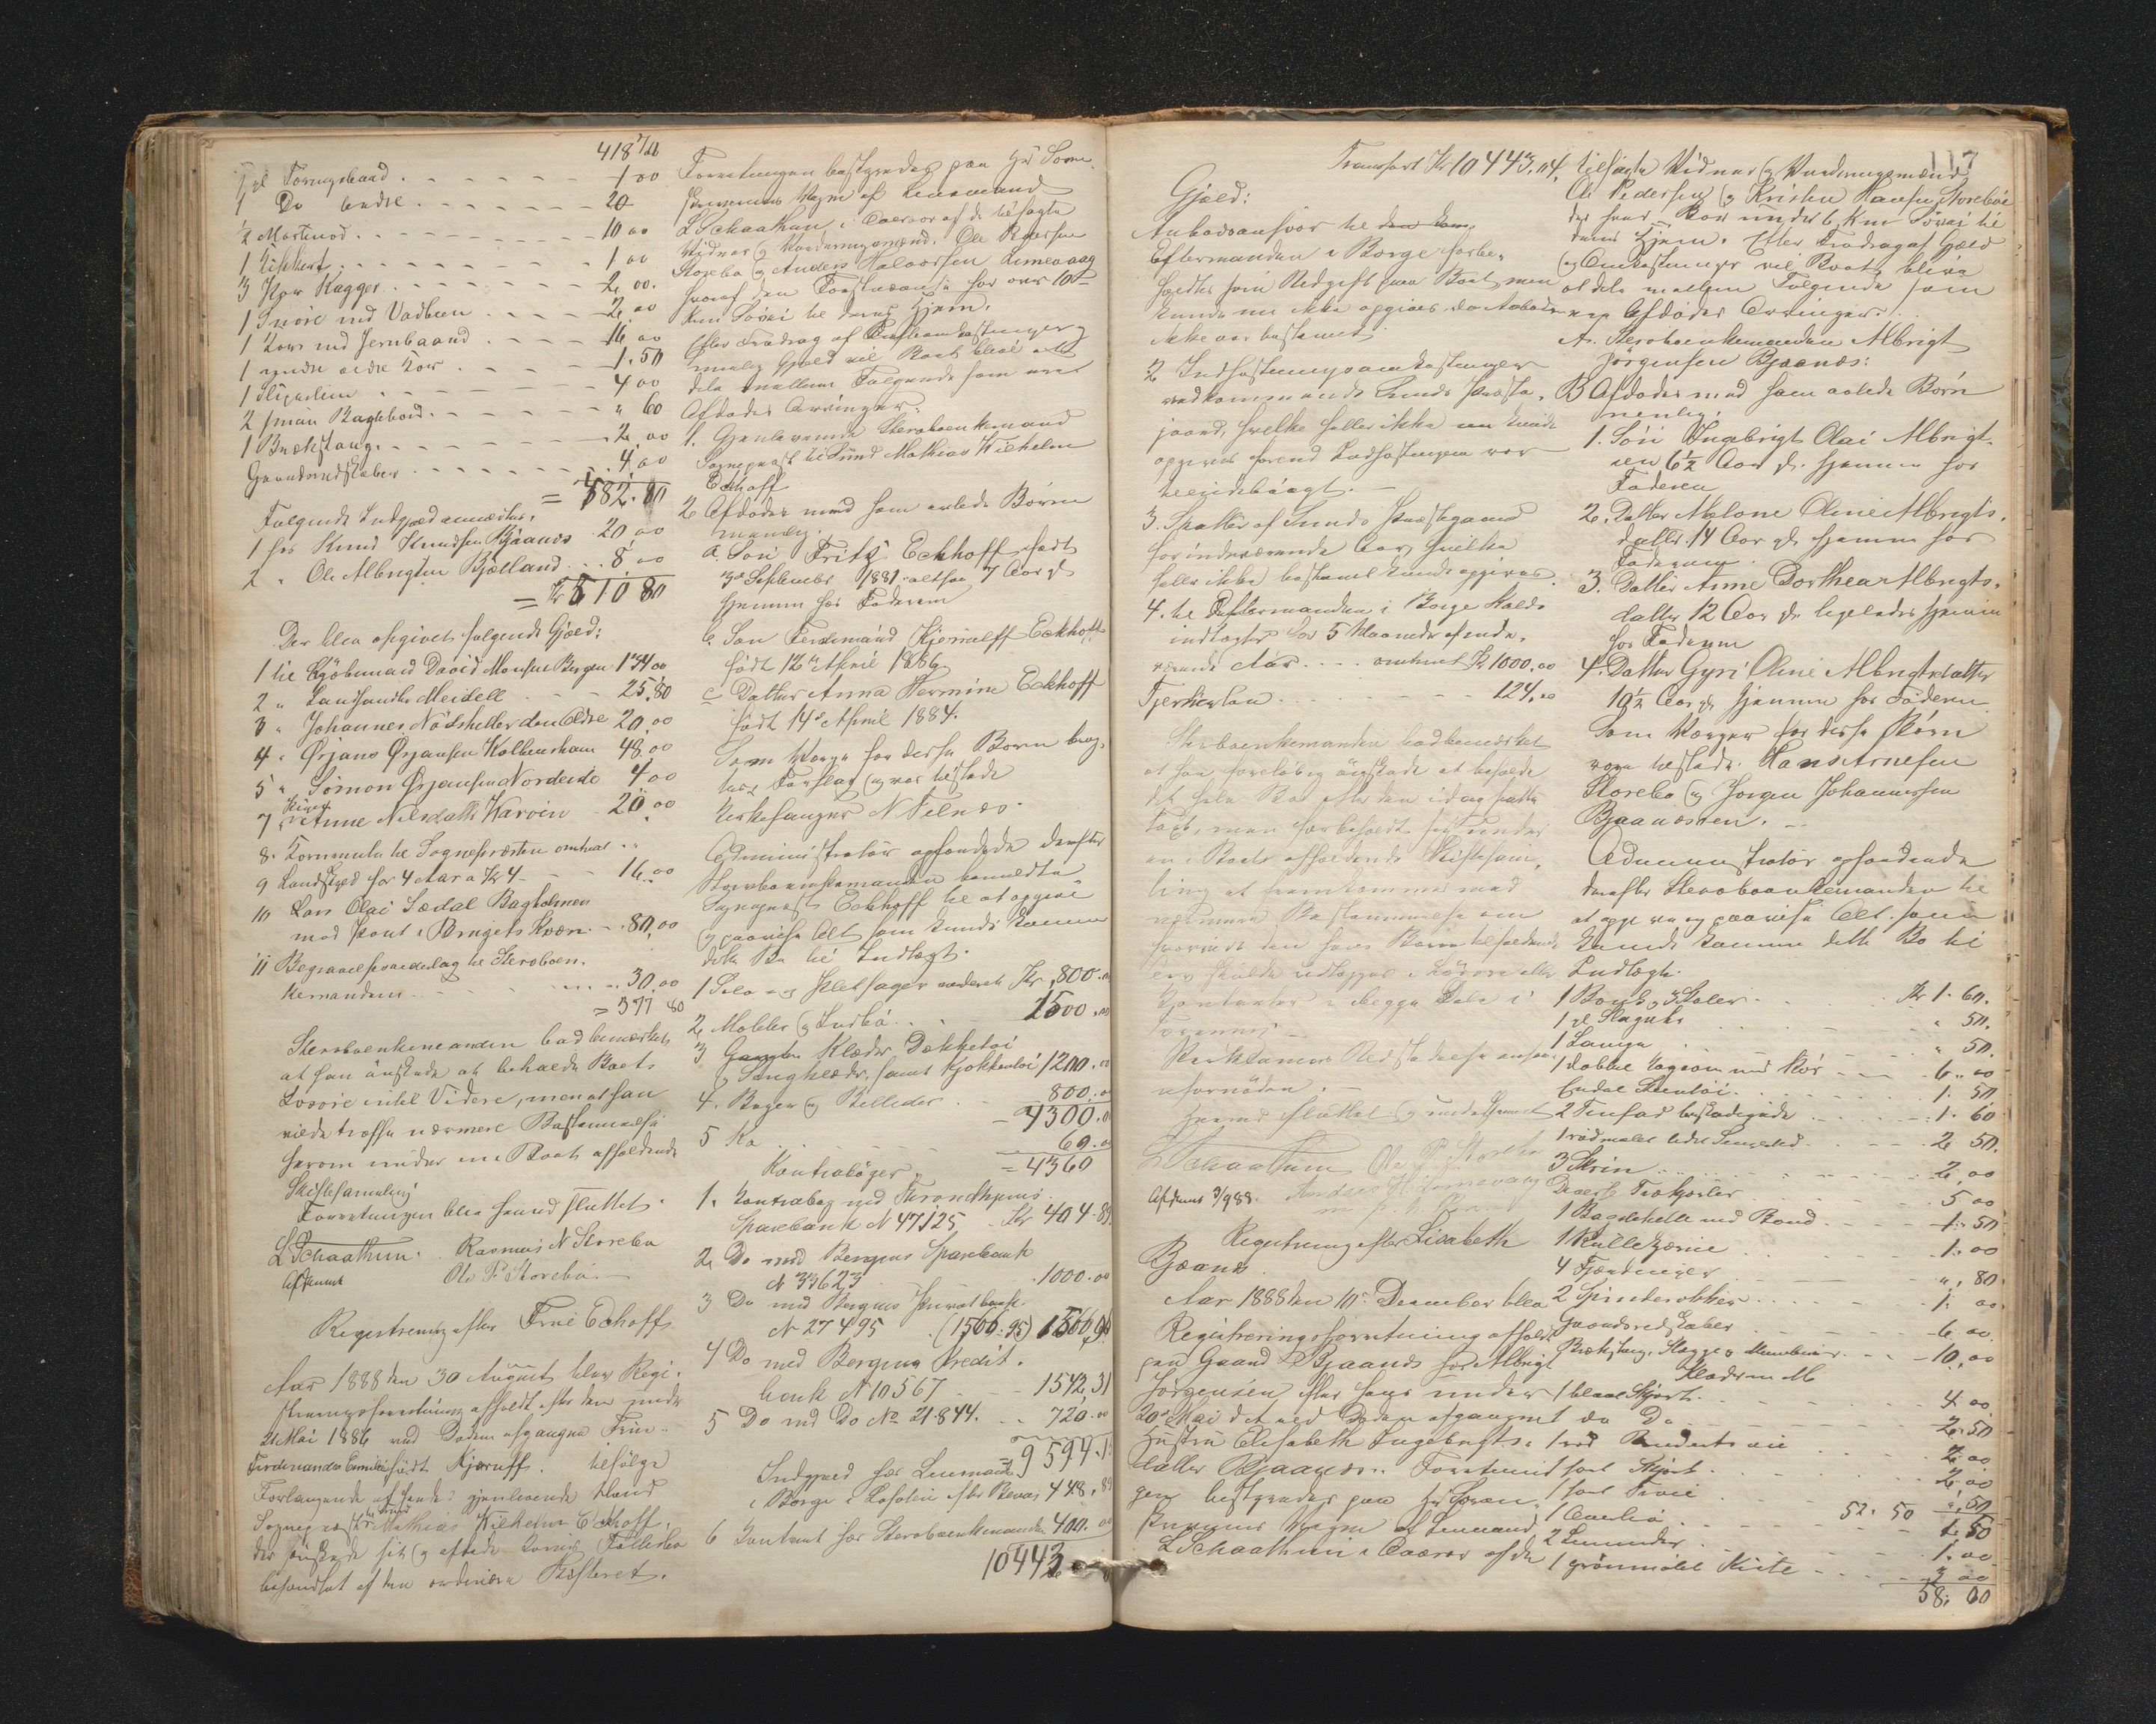 418
1 pl Törreyebaand 1 00
1 Do andre 20
1/2 Mortnod 10 00
1 00
3 Kagger 2,00
1 Snöre med Vadbeen 2,00
1 med Jernbaand 16,00
1 andre 1.50
1 Slipesteen 4 00
2 smaa Bagebord " 60
1 Brækstang 2,00
Gaardsredskaber 4,00
= 482.80
Følgende Indgjæld anmeldtes,
1 hos Knud Knudsen Bjaanæs 20,00
2 " Ole Albrigtsen Bjelland 8,00
= Kr 510 80
Der blev opgivet følgende Gjæld:
1 til Kjøbmand David Monsen Bergen 134,00
2 " Landhandler Meidell 25,80
3 " Johannes Nödskelle den ældre 20,00
4 " Örjans Örjansen Kolbenshavn 48,00
5 " Simon Örjansen Nordeide 4,00
7 " Anne Nilsdatter Karvein 20,00
8. til Sognepræsten omtrent "
9 Landskyld for 4 Aar a Kr 4 16,00
10 Lars Olai Sædal Bagholmen
mod Pant i Brugets 80,00
11 Begravelsesudlæg til Stervboen-
kemanden 30,00
= 377 80
Stervboenkemanden bad bemærket
at han önskede at beholde Boets
Lösöre indtil Videre, men at han
vilde træffe nærmere Bestemmelse
herom under en i Boet afholdende
Skiftesamling
Forretningen blev hermed sluttet.
L Schaathun. Rasmus N Storebø
Ole P. Storebö
Registrering efter Frue Eckhoff
Aar 1888 den 30 August blev Regi-
streringsforretning afholdt efter den under
21 Mai 1886 ved Döden afgangne Frue
Ferdinande Camilla födt Kjerulff. tilfølge
Forlangende af hendes gjenlevende Mand
Sogneprest Mathias Wilhelm Eckhoff,
der önskede sit og afdöde Kones Fællesbo
behandlet af den ordinære Skifteret.
Forretningen bestyredes paa Hr Soren-
skriverens Vegne af Lensmand
L Schaathun, i Overvær af de tilsagte
Vidner og Vurderingsmænd. Ole Pedersen
Storebø og Anders Halvorsen Lunevaag
hvoraf den Förstnævnte har over 10
Km Söveie til deres Hjem.
Efter Fradrag af Omkostninger og
mulig Gjæld vil Boet blive at
dele mellem Følgende som ere
Afdödes Arvinger.
1. Gjenlevende Stervboenkemand
Sogneprest til Sund Mathias Wilhelm
Eckhoff
2 Afdödes med ham avlede Börn
nemlig
a. Sön Fritz Eckhoff födt
3de September 1881. altsaa 7 Aar gl
hjemme hos Faderen
b Sön Ferdinand Kjerulff Eckhoff
födt 12te April 1886
c Datter Anna Hermine Eckhoff
födt 14de April 1884.
Som Værge for disse Börn brag-
tes i Forslag og var tilstede
Kirkesanger N Nilnæs
Administrator opfordrede derefter
Stervboenkemanden bemeldte
Sogneprest Eckhoff til at opgive
og paavise Alt som kunde komme
dette Bo til Indtægt.
1 Sölv og Pletsager vurderet Kr. 800.00
2 Möbler og Indbo 1500.00
3 Gangklæder Dækketöi
og Sengklæder, samt Kjøkkentöi 1200.00
4. Böger og Billeder 800.00
4300.00
5 Ko 60.00
= 4360
Kontraböger
1. Kontrabog med Throndhjems
Sparebank N 47125 Kr 404.89
2. Do med Bergens Sparebank
N 33623 1000.00
3 Do med Bergens Privatbank
N 27495 (1566:95) 1566,90
4 Do med Bergens Kredit-
bank N 10567 1542,31
5 Do med Do No 21844. 720.00
9594.1
Indgjæld hos Lensmand
i Borge i Lofoten efter Bevis 448,89
6 Kontant hos Stervboenkemanden 400.00
10443
117
Transport Kr 10443,04.
Gjæld:
Aabodsansvar til den
Eftermanden i Borge forbe-
holdtes som Udgift paa Boet, men
kunde nu ikke opgives, da Aaboden
ikke var bestemt
2 Indfæstningsomkostninger
vedkommende Sunds Præste-
gaard, hvilke heller ikke kunde
opgives forend Indfæstningen var
tilendebragt.
3. Skatter af Sunds Præstegaard
for indeværende Aar, hvilke
heller ikke bestemt kunde opgives.
4. til Eftermanden i Borge Kalds
indtægter for 5 Maaneder af inde-
værende Aar omtrent Kr 1000,00
Tjenerlön 124,00
Stervboenkemanden bad bemærket
at han foreløbig önskede at beholde
det hele Bo efter den idag satte
Taxt, men forbeholdt sig under
en i Boet afholdende Skiftesam-
ling at fremkomme med
nærmere Bestemmelse om
hvorvidt den hans Börn tilfaldende
Arv skulde udlægges i Lösöre eller
Kontanter i begge Dele i
Forening
Værktöi
ufornöden.
hermed sluttet og underskrevet
L Schaathun Ole P. Storebö
Afskrevet 3/9 88. Anders H Lunevaag
m. p. P.
Registrering efter Lisabeth
Bjaanæs
Aar 1888 den 10de December blev
Registreringsforretning afholdt
paa Gaard Bjaanæs hos Albrigt
Jörgensen efter hans under
20de Mai d A ved Döden afgangne
Hustru Elisabeth Ingebrigts-
datter Bjaanæs. Forretnin-
gen bestyredes paa Hr Soren-
skriverens Vegne af Lensmand
L Schaathun i Overvær af de
tilsagte Vidner og Vurderingsmænd
Ole Pedersen og Kristen Hansen Storebö
der har Begge under 6 Km Söveie til
deres Hjem. Efter Fradrag af Gjæld
og Omkostninger vil Boet blive
at dele mellem Følgende som
ere Afdödes Arvinger:
A. Stervboenkemanden Albrigt
Jörgensen Bjaanæs:
B Afdödes med ham avlede Börn
nemlig:
1. Sön Ingebrigt Olai Albrigt-
sen 6 1/2 Aar gl. hjemme hos
Faderen
2. Datter Malone Oline Albrigts-
datter. 14 Aar gl hjemme hos
Faderen.
3. Datter Anne Dorthea Albrigts-
datter 12 Aar gl. ligeledes hjemme
hos Faderen
4. Datter Gyri Oline Albrigtsdatter
10 1/2 Aar gl hjemme hos Faderen
Som Værger for disse Börn
vare tilstede. Hans Arnesen
Storebø og Jörgen Johannessen
Bjaanæsöen.
Administrator opfordrede
derefter Stervboenkemanden til
at opgive og paavise Alt som
kunde komme dette Bo til
Indtægt.
1 Bord, 3 Stoler Kr 1.60.
1 gl Slaguhr " 50.
1 Lampe " 50.
1 dobbelt Kakovn med Rör 6.00
Endel Steentöi 1.50
2 Tinfad beskadigede 1.60
1 rödmalet ældre Sengested 2 50.
3 Skrin 2,00
Diverse Trækjörler 5 00
1 Bagstehelle med Bord 1.50
1 Rullegærne 1.00
4 Fjerdinger ", 80.
2 Spinderokker 1. 00.
Gaardsredskaber 6.00.
Brækstang, Slægge og Minebore 10,00
Klæder
1 blaat Skjört 4.00
1 do Do 2.50
1 röd 2.00
1 sort Skjört 2,00
1 sort Tröie ", 50
1 52.50 1.50
2 1.00
1 grönmalet Kiste 3 00
58. 00